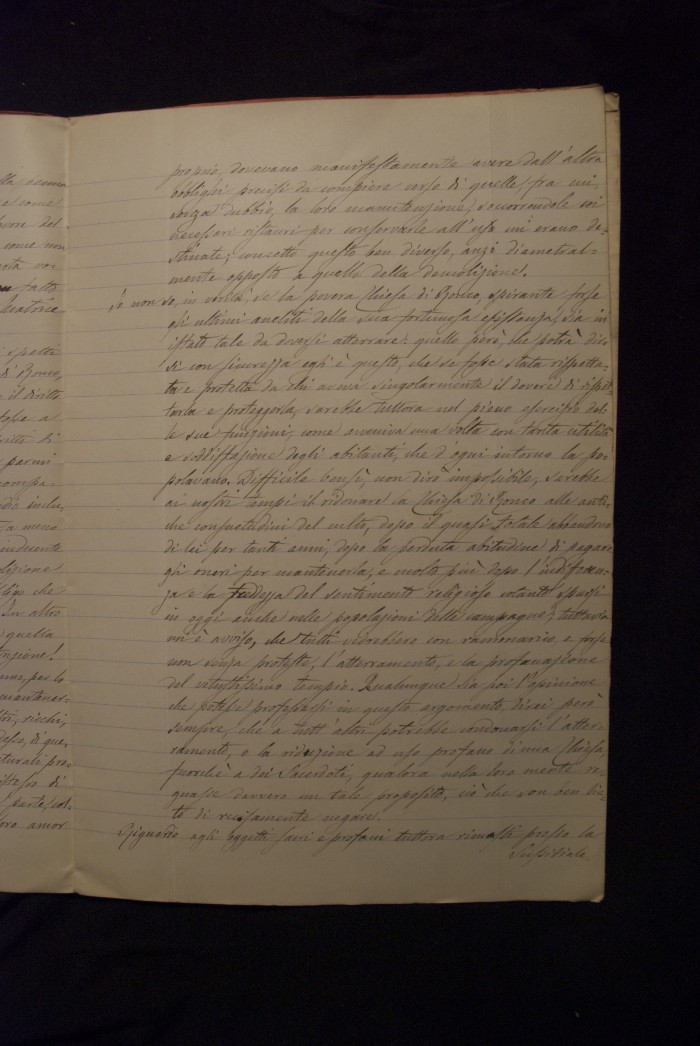 proprio, dovevano manifestamente avere dall'altra
obblighi precisi da compiere verso di quelle, fra cui,
senza dubbio, la loro manutenzione, soccorrendole coi
necessari ristauri per conservarle all'uso cui erano de-
stinate; concetto questo ben diverso, anzi diametral-
mente opposto a quello della demolizione!
Io non so, in verità, se la povera Chiesa di Ronco, spirante forse
gli ultimi aneliti della sua fortunosa esistenza, sia in
istato tale da doversi atterrare: quello però, che potrà dir-
si con sicurezza egli è questo, che se fosse stata rispetta-
ta e protetta da chi aveva singolarmente il dovere di rispet-
tarla e proteggerla, sarebbe tuttora nel pieno esercizio del-
le sue funzioni, come avveniva una volta con tanta utilità
e soddisfazione degli abitanti, che d'ogni intorno la po-
polavano. Difficile bensì, non dirò impossibile, sarebbe
ai nostri tempi il ridonare la Chiesa di Ronco alle anti-
che consuetudini del culto, dopo il quasi totale abbandono
di lei per tanti anni, dopo la perduta abitudine di pagare
gli oneri per mantenerla, e molto più dopo l'indifferen-
za e la freddezza del sentimento religioso
in oggi anche nelle popolazioni delle campagne; tuttavia
mi è avviso, che tutti vedrebbero con rammarico, e forse
non senza proteste, l'atterramento, e la profanazione
del vetustissimo tempio. Qualunque sia poi l'opinione
che potesse professarsi in questo argomento dicei però
sempre, che a tutt'altri potrebbe condonarsi l'atter-
ramento, o la riduzione ad uso profano di una Chiesa,
fuorchè a dei Sacerdoti, qualora nella loro mente re-
gnasse davvero un tale proposito, ciò che son ben lie-
to di recisamente negare.
Riguardo agli oggetti sacri e profani tuttora rimasti presso la
Sussidiale
lla
e come
vore del
come non
fatto
Beatrice
spetti
di Ronco,
e il diretto
a
di
parmi
compa-
inclu,
a meno
lizione
che
In altro
quella
per lo
mantener-
ricchi,
di que,
di
parte, col-
oro amor